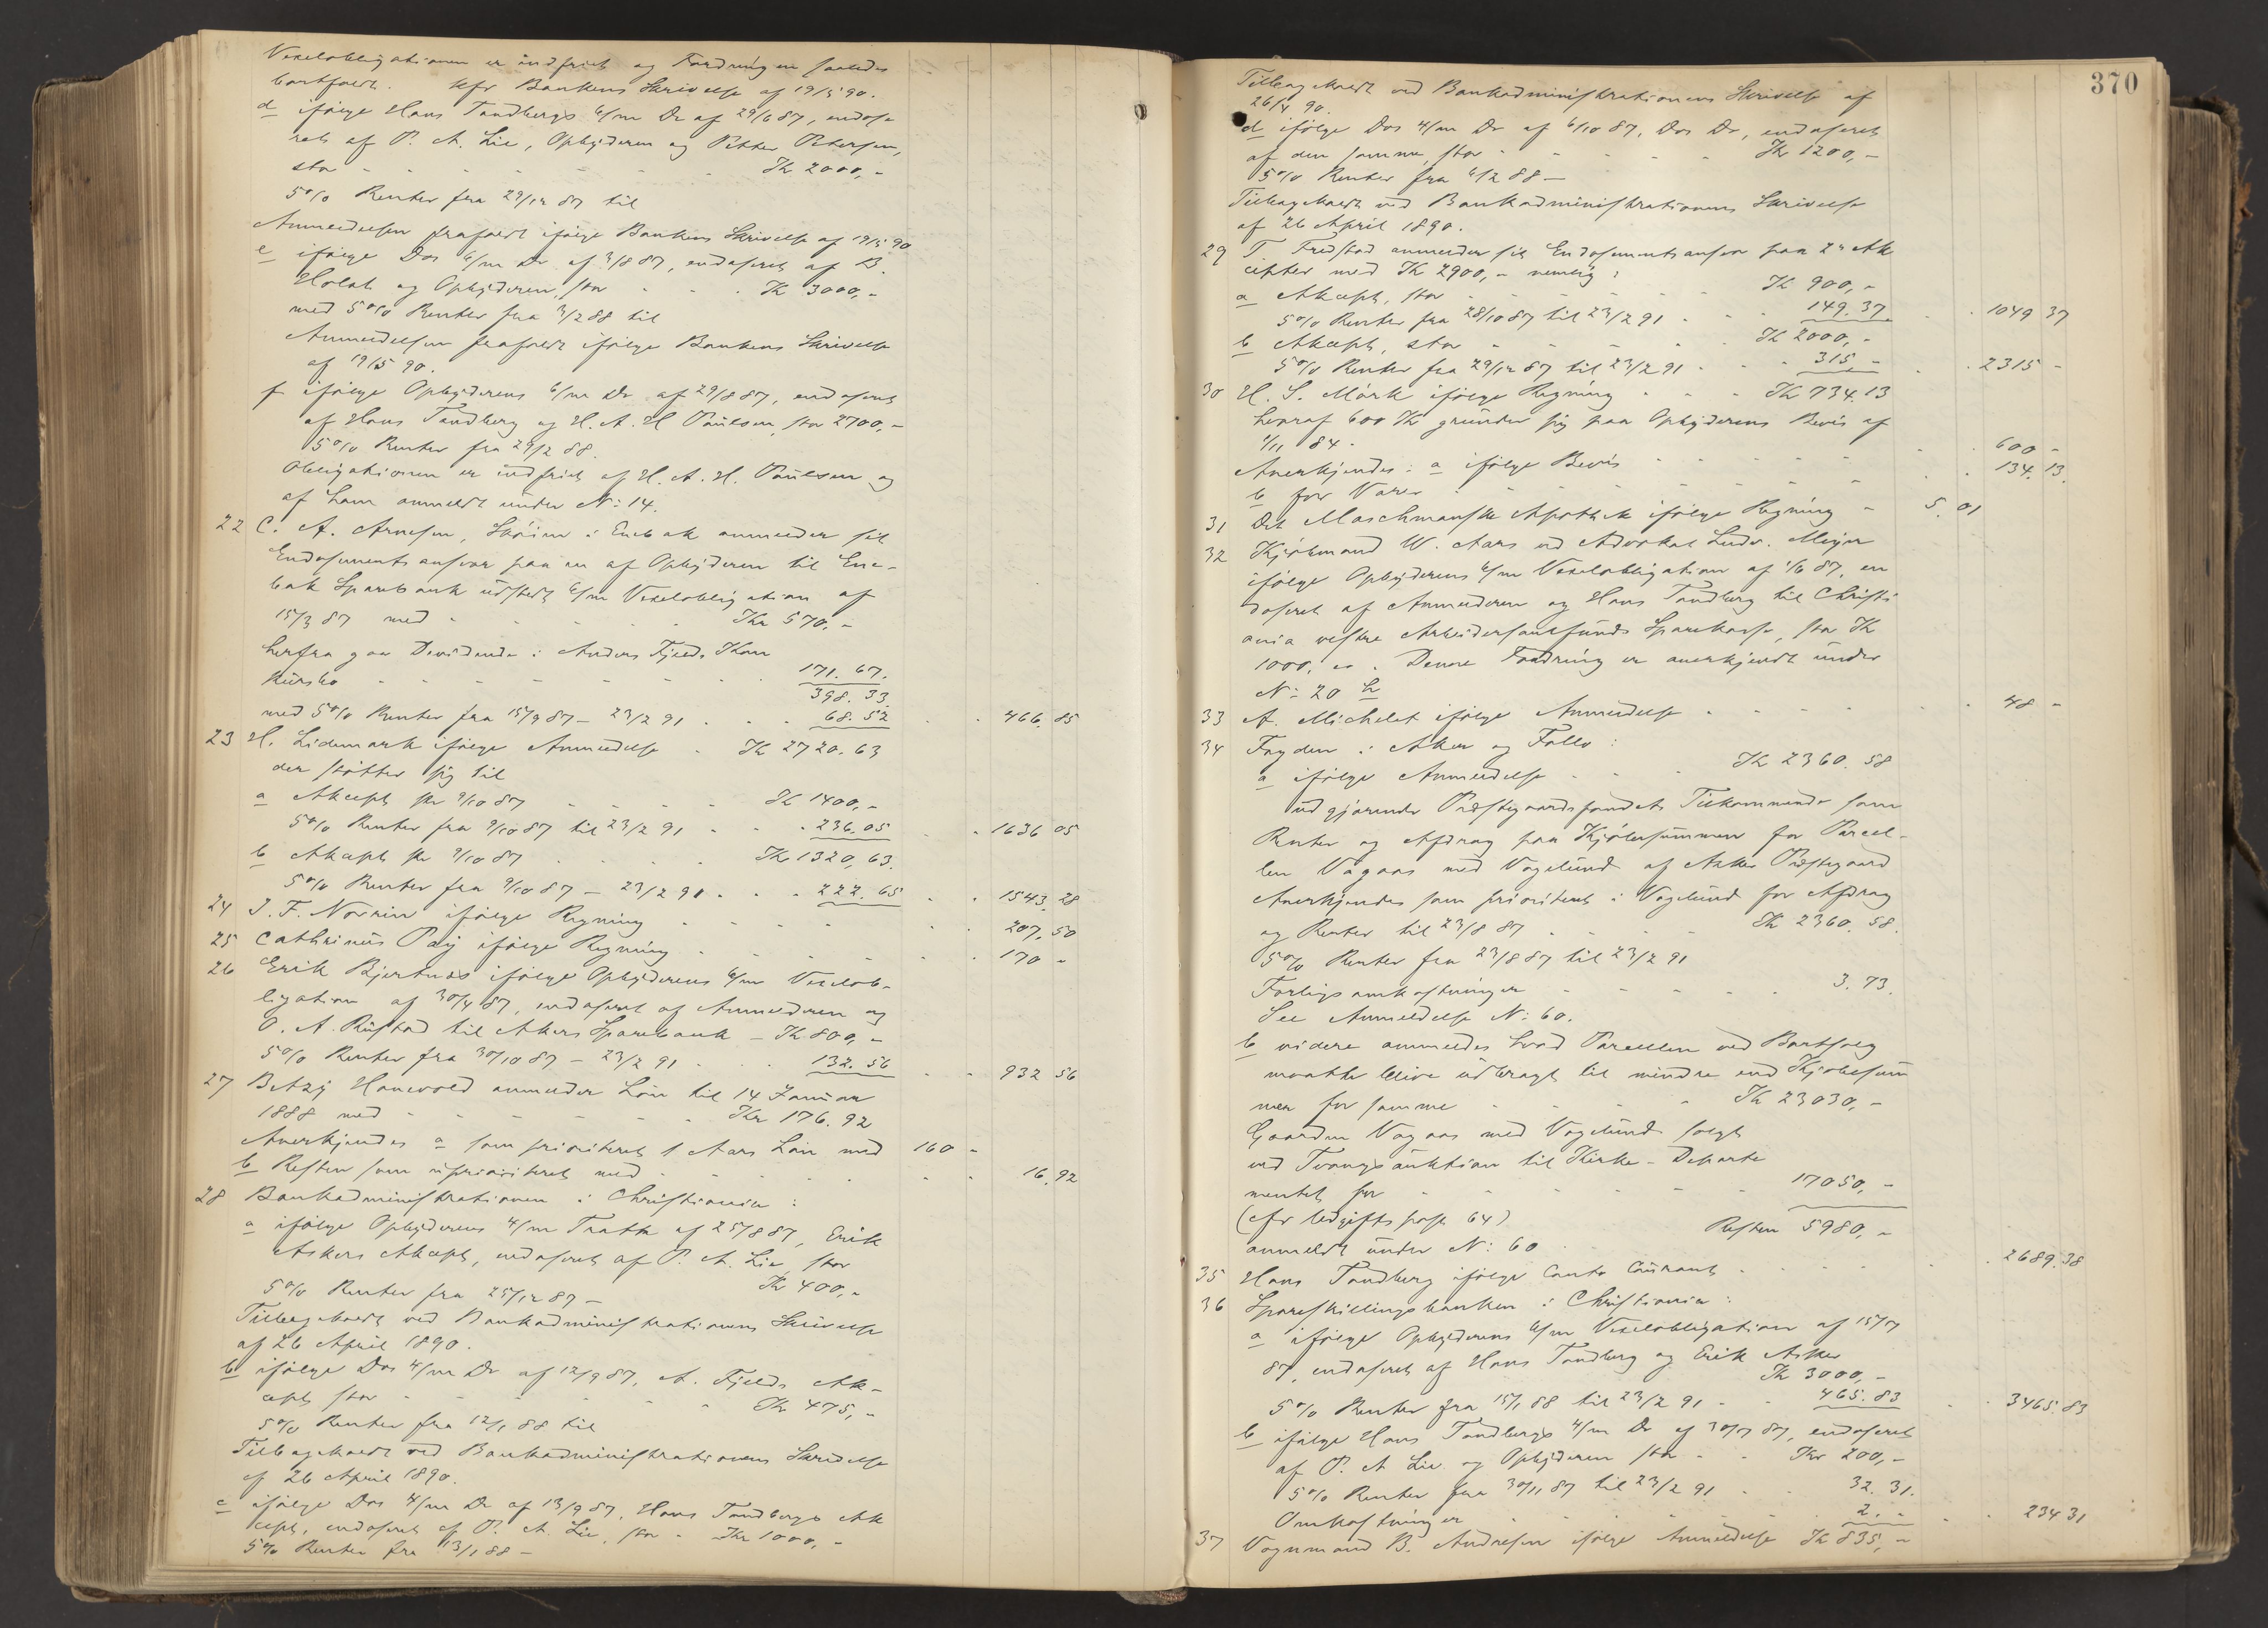 Vexelobligationen er indfriet og Fordringen saaledes
bortfaldt. Kfr Bankens Skrivelse af 19/5 90.
d ifølge Hans Tandbergs 6/m Do af 29/6 87, endosse
ret af P. A. Lie, Opbyderen og Petter Petersen,
stor Kr 2000,-
5 % Renter fra 29/12 87 til
Anmeldelsen frafaldt ifølge Bankens Skrivelse af 19/5 90
e ifølge Dos 6/m Do af 3/8 87, endoseret af B.
Holst og Opbyderen, stor Kr 3000,-
med 5 % Renter fra 3/2 88 til
Anmeldelsen frafaldt ifølge Bankens Skrivelse
af 19/5 90.
f ifølge Opbyderens 6/m Do af 29/8 87, endoseret
af Hans Tandberg og H. A. H. Paulsen, stor 2700,-
5 % Renter fra 29/2 88.
Obligationen er indfriet af H. A. H. Paulsen og
af ham anmeldt under N: 14.
22 C. A. Arnesen, Skøien i Enebak anmelder sit
Endosementsansvar paa en af Opbyderen til Ene-
bak Sparebank udstedt 6/m Vexelobligation af
15/3 87 med Kr 570,-
herfra gaa Dividende i Anders Fjelds Kon
kursbo 171. 67.
398. 33.
med 5 % Renter fra 15/9 87 - 23/2 91 68. 52 466. 85
23 H. Lidemark ifølge Anmeldelse Kr 2720. 63
der støtter sig til
a Akcept pr 9/10 87 Kr 1400,-
5 % Renter fra 9/10 87 til 23/2 91 236. 05 1636 05
b Akcept pr 9/10 87 Kr 1320, 63.
5 % Renter fra 9/10 87 - 23/2 91 222. 65 1543. 28
24 J. F. Norrin ifølge Regning 207. 50
25 Cathrinus Pay ifølge Regning 170 -
26 Erik Bjertnæs ifølge Opbyderens 6/m Vexelob-
ligation af 30/4 87, endoseret af Anmelderen og
O. A. Rustad til Akers Sparebank - Kr 800,-
5 % Renter fra 30/10 87 - 23/2 91 132. 56 932 56
27 Betzy Hanevold anmelder Løn til 14 Januar
1888 med Kr 176. 92
Anerkjendes a som prioriteret 1 Aars Løn med 160 -
b Resten som uprioriteret med 16. 92
28 Bankadministrationen i Christiania:
a ifølge Opbyderens 4/m Tratte af 25/8 87, Erik
Askers Akcept, endoseret af P. A. Lie, stor
Kr 400,-
5 % Renter fra 25/12 87 -
Tilbagekaldt ved Bankadministrationens Skrivelse
af 26 April 1890.
b ifølge Dos 4/m Do af 12/9 87, A. Fjelds Ak-
cept stor Kr 475,-
5 % Renter fra 12/1 88 til
Tilbagekaldt ved Bankadministrationens Skrivelse
af 26 April 1890.
c ifølge Dos 4/m Do af 13/9 87, Hans Tandbergs Ak
cept, endoseret af P. A. Lie, stor Kr 1000,-
5 % Renter fra 13/1 88 -
370
Tilbagekaldt ved Bankadministrationens Skrivelse af
26/4 90.
d ifølge Dos 4/m Do af 6/10 87, Dos Do, endoseret
af den samme, stor Kr 1200,-
5 % Renter fra 6/2 88 -
Tilbagekaldt ved Bankadministrationens Skrivelse
af 26 April 1890.
29 T Fredstad anmelder sit Endosementsansvar paa 2de Ak
cepter med Kr 2900,- nemlig:
a Akcept, stor Kr 900,-
5 % Renter fra 28/10 87 til 23/2 91 149. 37. 1049 37
b Akcept, stor Kr 2000,-
5 % Renter fra 29/12 87 til 23/2 91 315,- 2315 -
30 H. S. Mørk ifølge Regning Kr 734. 13
hvoraf 600 Kr grunder sig paa Opbyderens Bevis af
1/11 84.
Anerkjendes: a ifølge Bevis 600 -
b for Varer 134. 13.
31 Det Maschmanske Apothek ifølge Regning 5. 01
32 Kjøbmand W. Aars ved Advokat Ludv. Meyer
ifølge Opbyderens 6/m Vexelobligation af 1/6 87, en
doseret af Anmelderen og Hans Tandberg til Christi
ania vestre Arbeidersamfunds Sparekasse, stor Kr
1000,00. Denne Fordring er anerkjendt under
N: 20 h
33 A. Michelet ifølge Anmeldelse 48 -
34 Fogden i Aker og Follo:
a ifølge Anmeldelse Kr 2360. 58
udgjørende Præstegaardsfondets Tilkommende som
Renter og Afdrag paa Kjøbesummen for Parcel-
len Vagaas med Vagelund af Asker Præstegaard
Anerkjendes som prioriteret i Vagelund for Afdrag
og Renter til 23/8 87 Kr 2360. 58.
5 % Renter fra 23/8 87 til 23/2 91
Forligsomkostninger 3. 73.
See Anmeldelse N: 60.
b videre anmeldes hvad Parcellen ved Bortsalg
maatte blive udbragt til mindre end Kjøbesum
men for samme Kr 23030,-
Gaarden Vagaas med Vagelund solgt
ved Tvangsauktion til Kirke-Departe
mentet for 17050,-
(cfr Udgiftspost 64) Resten 5980,-
anmeldt under N: 60
35 Hans Tandberg ifølge Conto Courant 2689. 38
36 Spareskillingsbanken i Christiania:
a ifølge Opbyderens 6/m Vexelobligation af 15/7
87, endoseret af Hans Tandberg og Erik Asker
Kr 3000,-
5 % Renter fra 15/1 88 til 23/2 91 465. 83 3465. 83
b ifølge Hans Tandbergs 4/m Do af 30/7 87, endoseret
af P. A. Lie og Opbyderen stor Kr 200,-
5 % Renter fra 30/11 87 til 23/2 91 32. 31.
Omkostninger 2. - 234 31
37 Vognmand B. Andresen ifølge Anmeldelse Kr 835,-